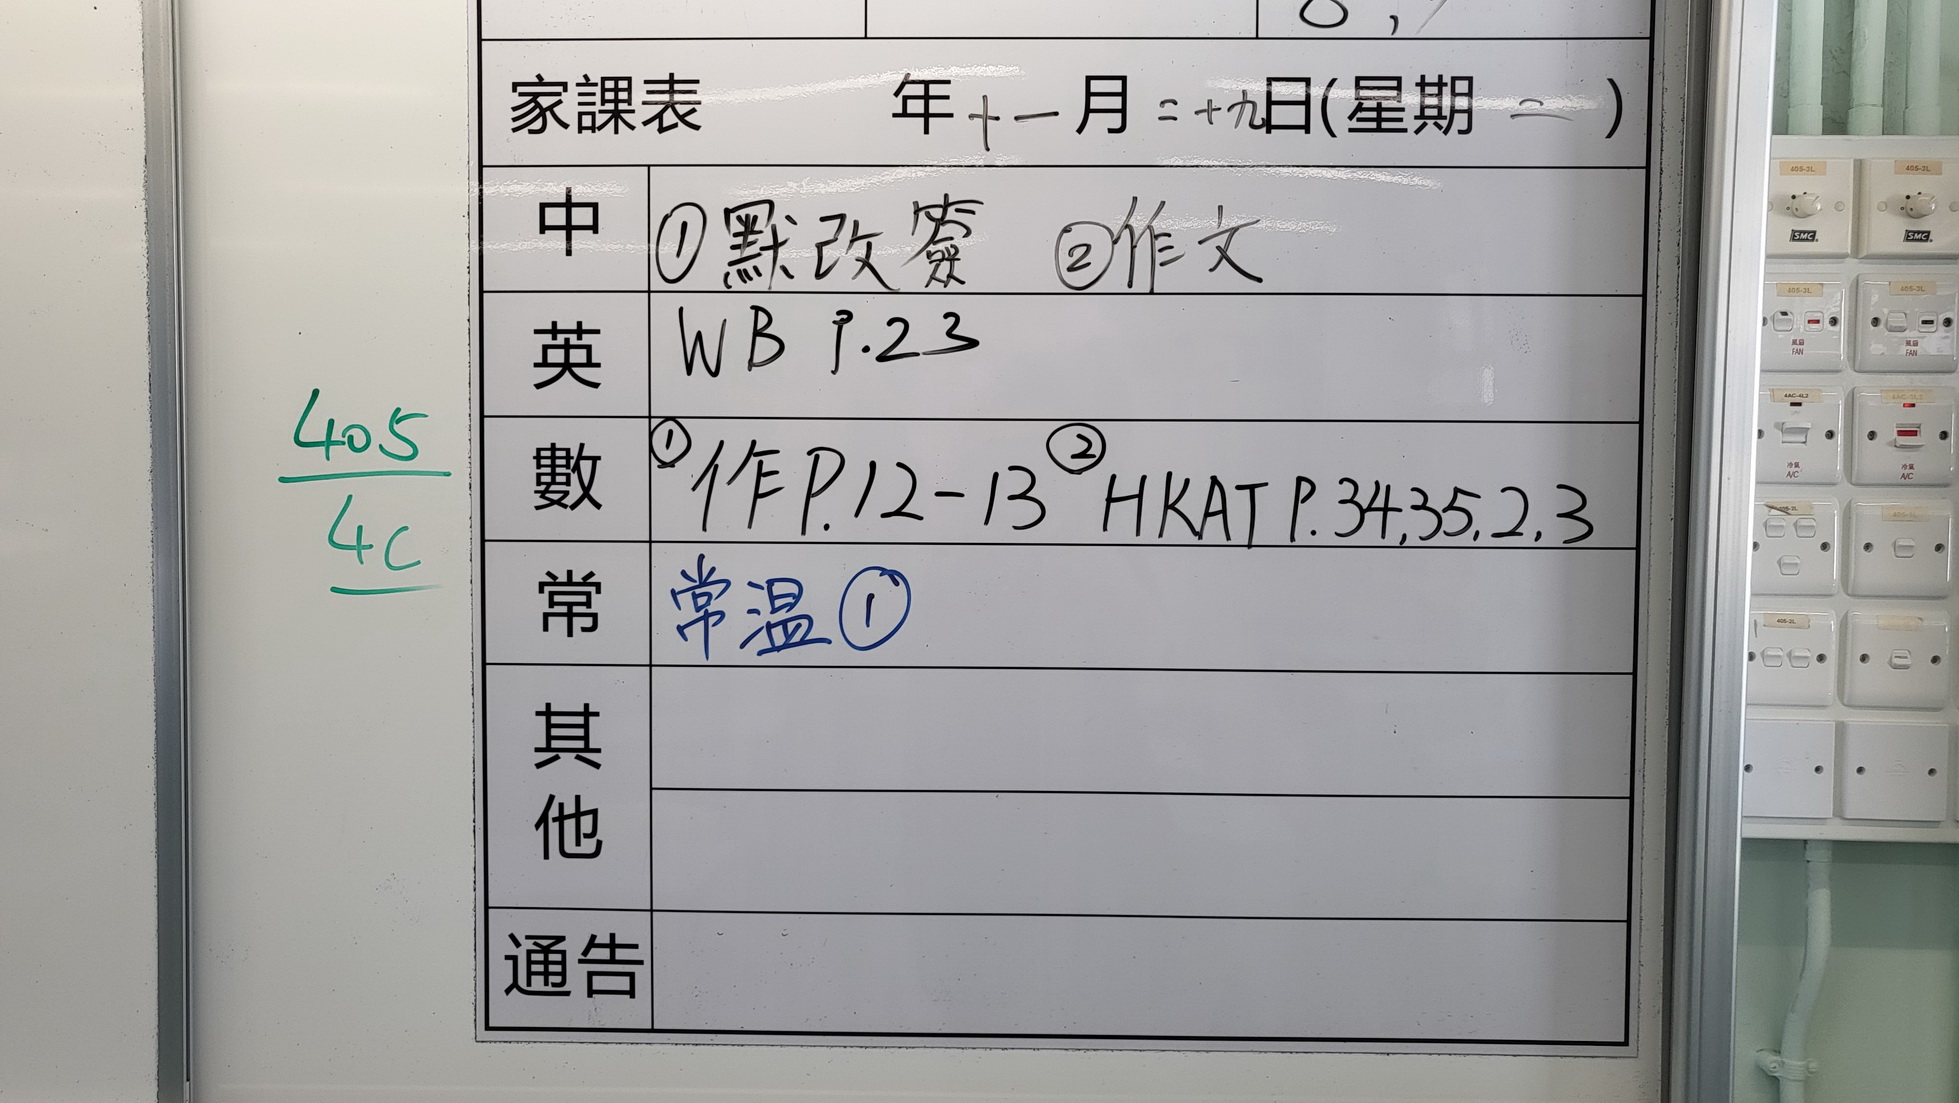 家課表 年十一月二十九日(星期二)
中 ①默改簽 ②作文
英 WB P.23
數 ①作P.12-13 ②HKAT P.34,35,2,3
常 常溫①
其他
通告
405
4C
405-3L 405-3L
SMC SMC
405-3L 405-3L
風扇 風扇
FAN FAN
4AC-4L2
冷氣 冷氣
A/C A/C
405-2L